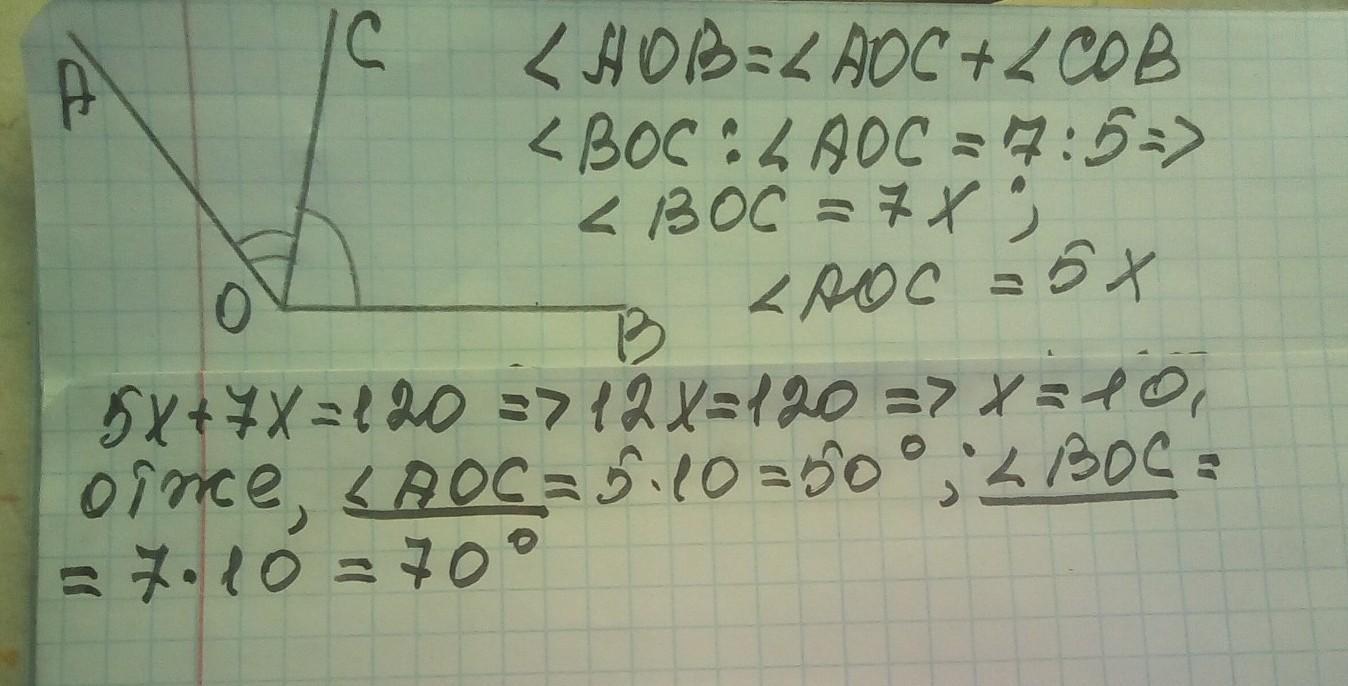 A
C
O
B
∠AOB=∠AOC+∠COB
∠BOC:∠AOC=7:5=>
∠BOC=7x;
∠AOC=5x
5x+7x=120=>12x=120=>x=10,
отже, ∠AOC=5·10=50°; ∠BOC=
=7·10=70°